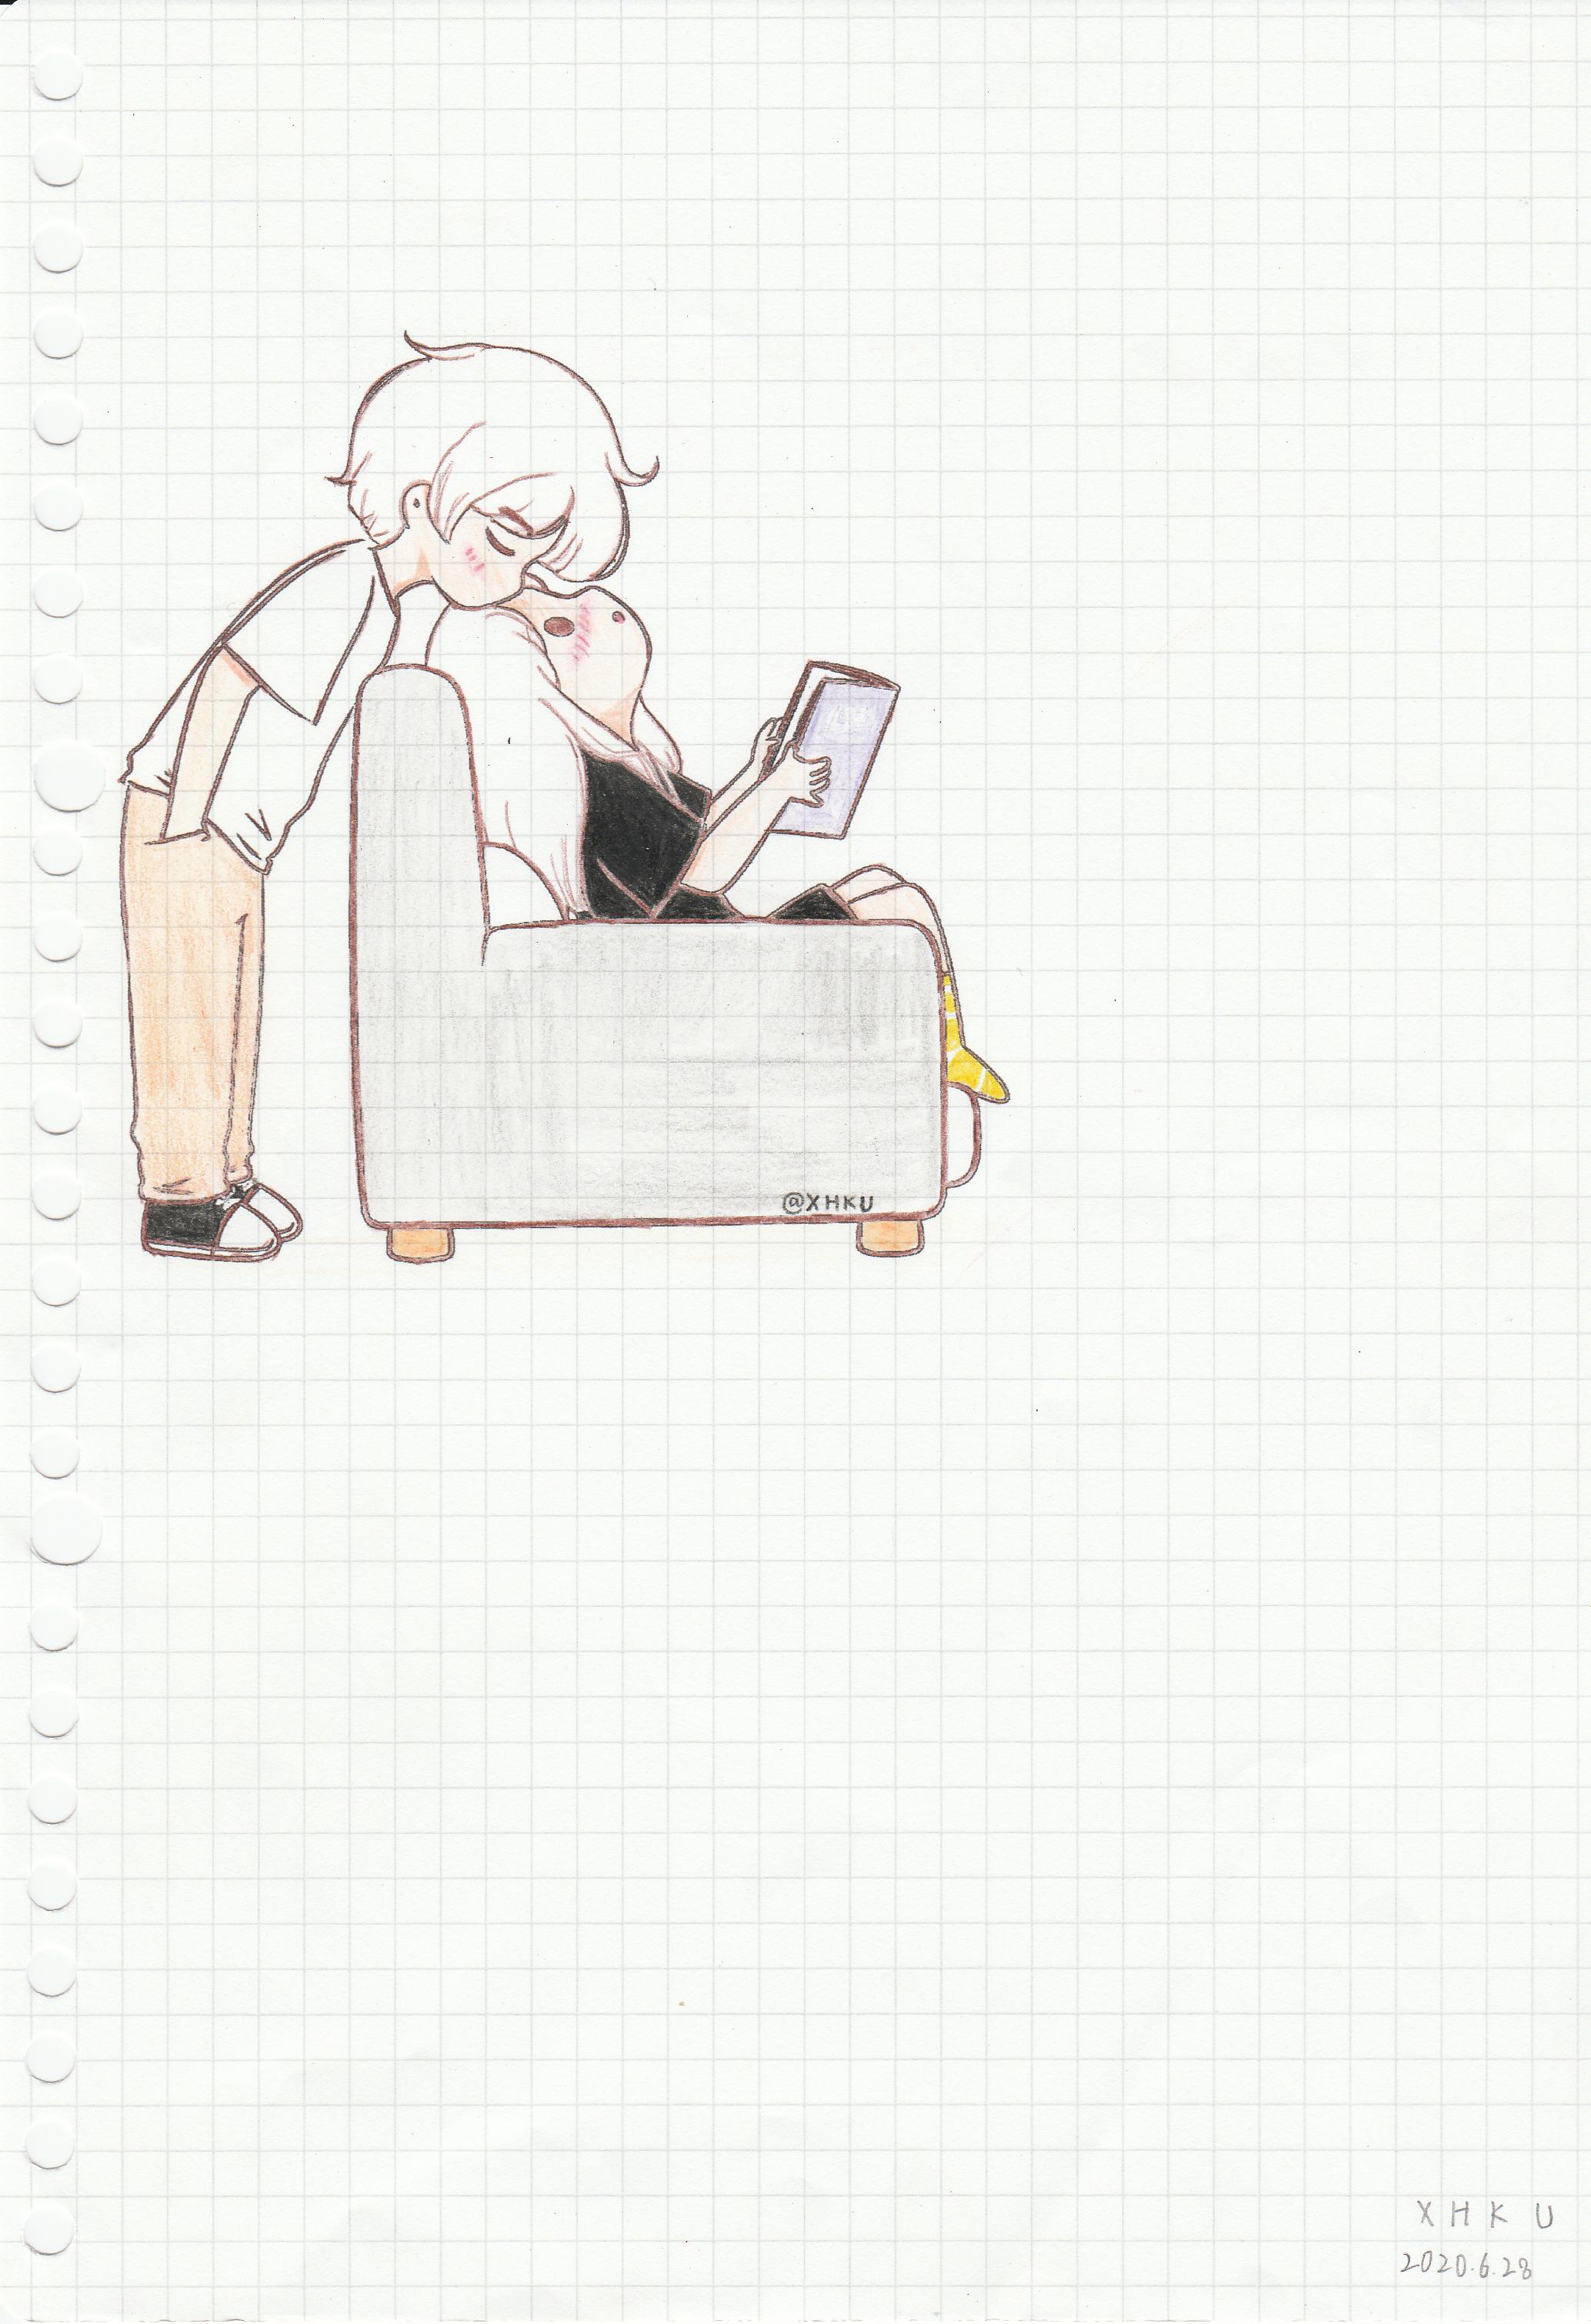 @XHKU
XHKU
2020.6.28